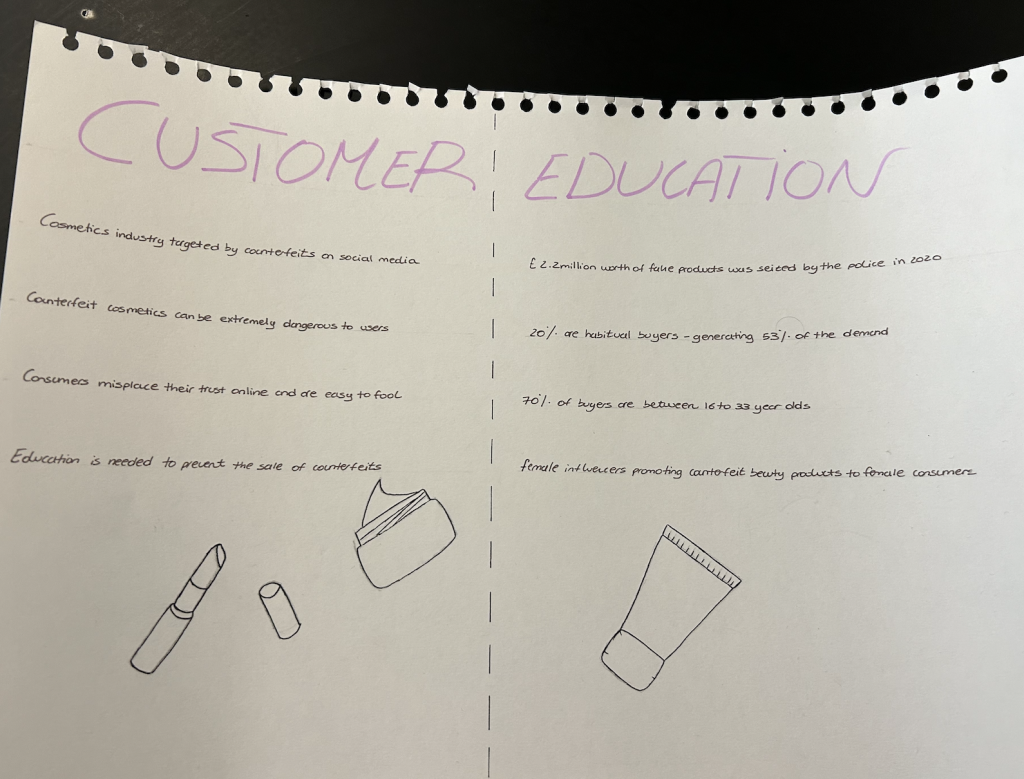 CUSTOMER EDUCATION
Cosmetics industry targeted by counterfeits on social media
Counterfeit cosmetics can be extremely dangerous to users
Consumers misplace their trust online and are easy to fool
Education is needed to prevent the sale of counterfeits
£2.2million worth of fake products was seized by the police in 2020
20% are habitual buyers - generating 53% of the demand
70% of buyers are between 16 to 33 year olds
female influencers promoting canterfeit beuty products to female consumers